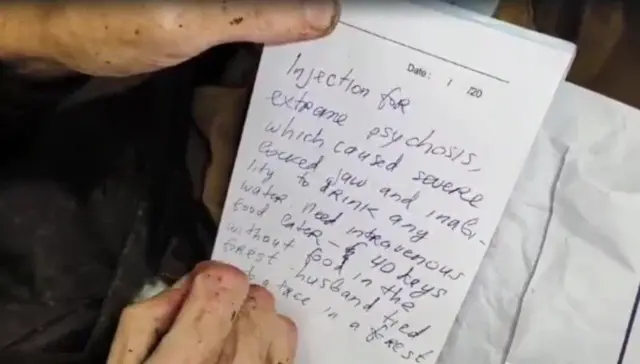 Date: / /20
Injection for
extreme psychosis,
which caused severe
locked jaw and inabi-
lity to drink any
water. Need intravenous
food later - 40 days
without food in the
forest. husband tied
to a tree in a forest